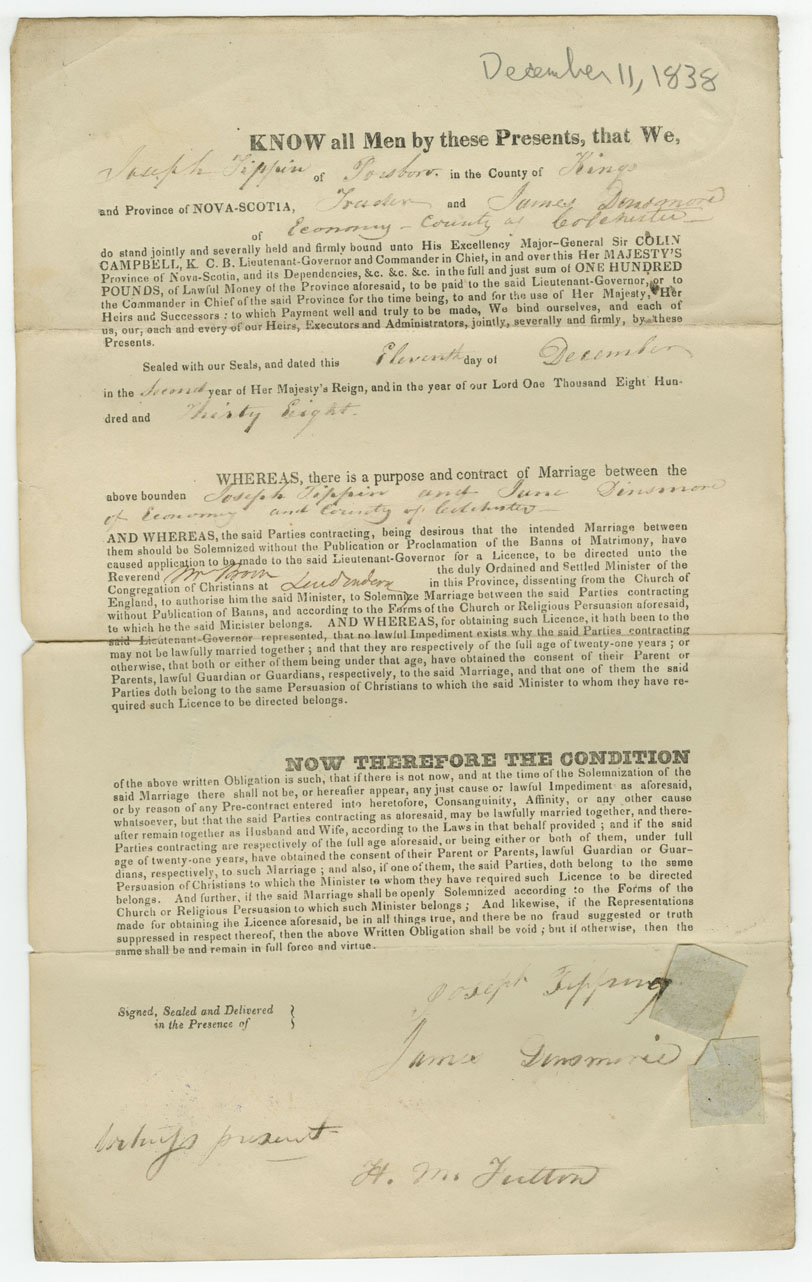 December 11, 1838
KNOW all Men by these Presents, that We,
Joseph Tippin of in the County of Kings
and Province of NOVA-SCOTIA, Trader and James Densmore
of Economy - County of Colchester
do stand jointly and severally held and firmly bound unto His Excellency Major-General Sir COLIN
CAMPBELL, K. C. B. Lieutenant-Governor and Commander in Chief, in and over this Her MAJESTY'S
Province of Nova-Scotia, and its Dependencies, &c. &c. &c. in the full and just sum of ONE HUNDRED
POUNDS, of Lawful Money of the Province aforesaid, to be paid to the said Lieutenant-Governor, or to
the Commander in Chief of the said Province for the time being, to and for the use of Her Majesty, Her
Heirs and Successors : to which Payment well and truly to be made, We bind ourselves, and each of
us, our, each and every of our Heirs, Executors and Administrators, jointly, severally and firmly, by these
Presents.
Sealed with our Seals, and dated this Eleventh day of December
in the Second year of Her Majesty's Reign, and in the year of our Lord One Thousand Eight Hun-
dred and Thirty Eight.
WHEREAS, there is a purpose and contract of Marriage between the
above bounden Joseph Tippin and June Dinsmore
of Economy and County of Colchester
AND WHEREAS, the said Parties contracting, being desirous that the intended Marriage between
them should be Solemnized without the Publication or Proclamation of the Banns of Matrimony, have
caused application to be made to the said Lieutenant-Governor for a Licence, to be directed unto the
Reverend Mr the duly Ordained and Settled Minister of the
Congregation of Christians at in this Province, dissenting from the Church of
England, to authorise him the said Minister, to Solemnize Marriage between the said Parties contracting
without Publication of Banns, and according to the Forms of the Church or Religious Persuasion aforesaid,
to which he the said Minister belongs. AND WHEREAS, for obtaining such Licence, it hath been to the
said Lieutenant-Governor represented, that no lawful Impediment exists why the said Parties contracting
may not be lawfully married together ; and that they are respectively of the full age of twenty-one years ; or
otherwise, that both or either of them being under that age, have obtained the consent of their Parent or
Parents, lawful Guardian or Guardians, respectively, to the said Marriage, and that one of them the said
Parties doth belong to the same Persuasion of Christians to which the said Minister to whom they have re-
quired such Licence to be directed belongs.
NOW THEREFORE THE CONDITION
of the above written Obligation is such, that if there is not now, and at the time of the Solemnization of the
said Marriage there shall not be, or hereafter appear, any just cause or lawful Impediment as aforesaid,
or by reason of any Pre-contract entered into heretofore, Consanguinity, Affinity, or any other cause
whatsoever, but that the said Parties contracting as aforesaid, may be lawfully married together, and there-
after remain together as Husband and Wife, according to the Laws in that behalf provided ; and if the said
Parties contracting are respectively of the full age aforesaid, or being either or both of them, under full
age of twenty-one years, have obtained the consent of their Parent or Parents, lawful Guardian or Guar-
dians, respectively, to such Marriage ; and also, if one of them, the said Parties, doth belong to the same
Persuasion of Christians to which the Minister to whom they have required such Licence to be directed
belongs. And further, if the said Marriage shall be openly Solemnized according to the Forms of the
Church or Religious Persuasion to which such Minister belongs ; And likewise, if the Representations
made for obtaining the Licence aforesaid, be in all things true, and there be no fraud suggested or truth
suppressed in respect thereof, then the above Written Obligation shall be void ; but if otherwise, then the
same shall be and remain in full force and virtue.
Joseph
Signed, Sealed and Delivered
in the Presence of
James Densmore
Witness present
H. M. Fulton